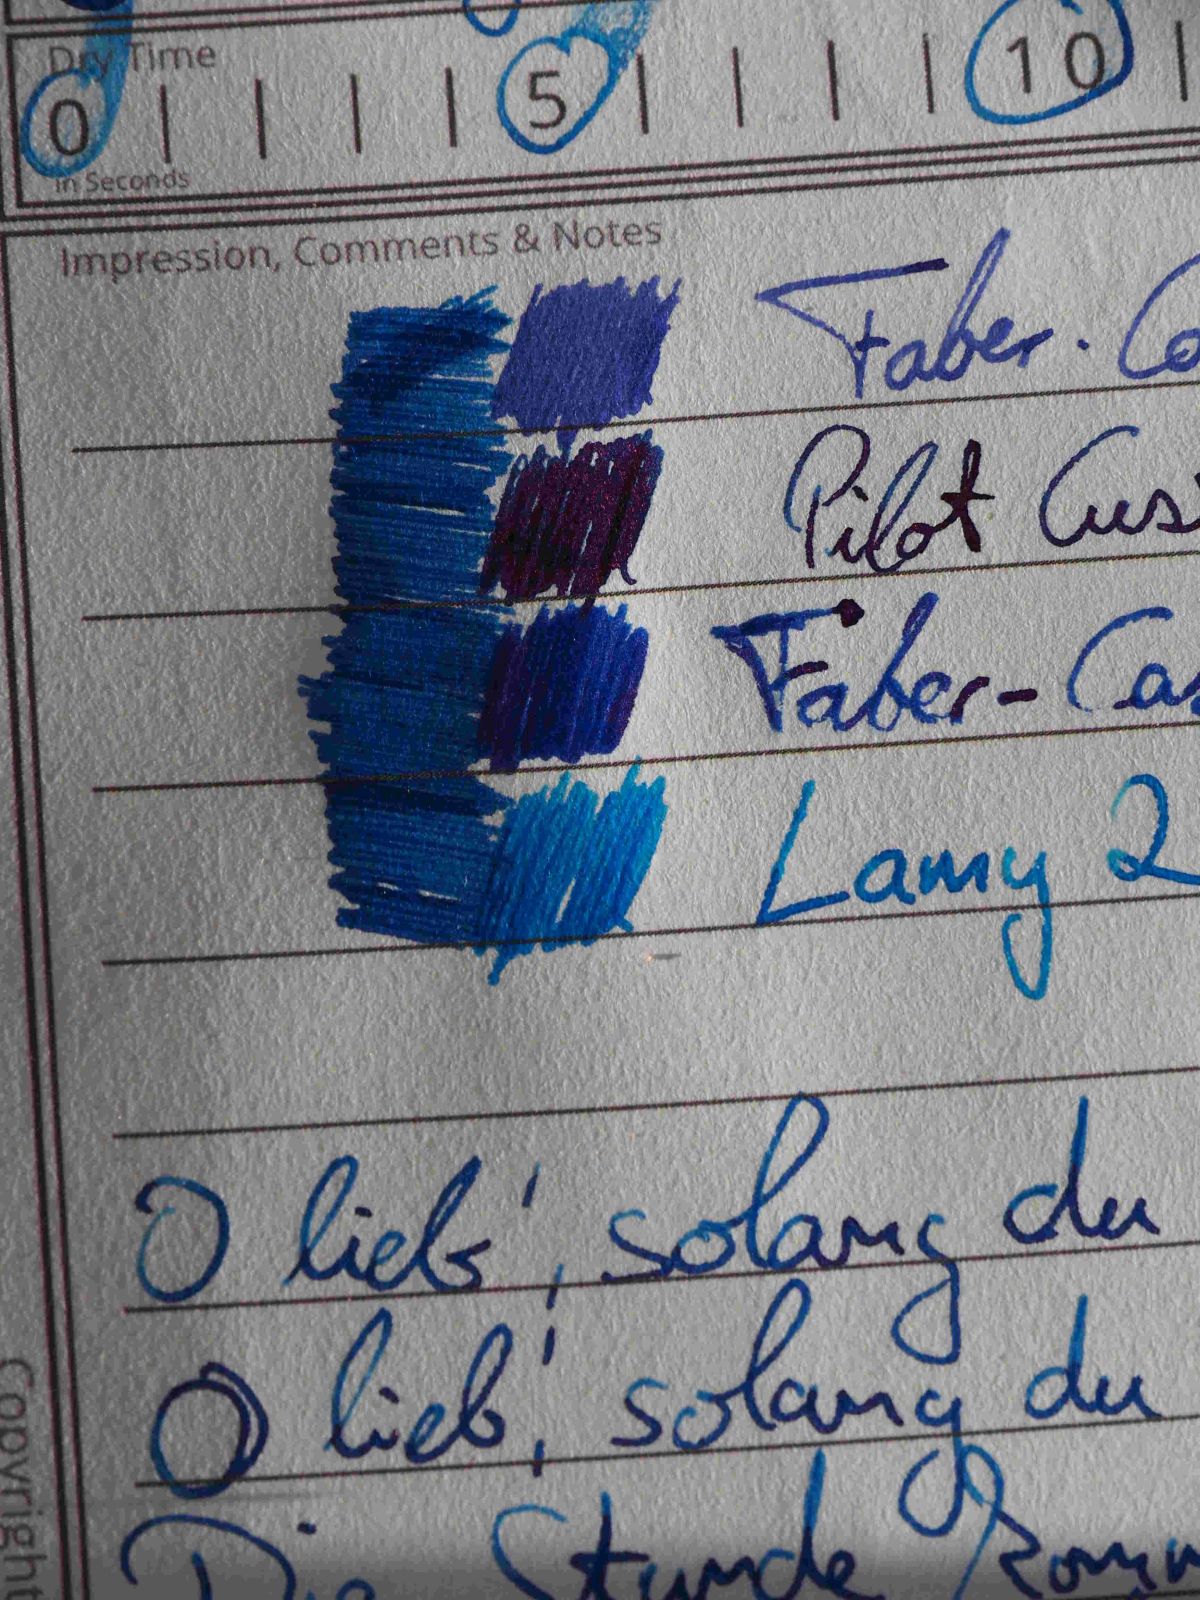 Dry Time
0 5 10
in Seconds
Impression, Comments & Notes
Faber-
Pilot Cus
Faber-Cas
Lamy 2
O lieb', solang du
O lieb', solang du
Die Stunde komm
Copyright